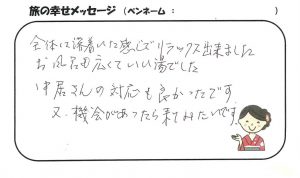 旅の幸せメッセージ (ペンネーム : )
全体に落着いた感じでリラックス出来ました
お風呂も広くていい湯でした
仲居さんの対応も良かったです
又、機会があったら来てみたいです。